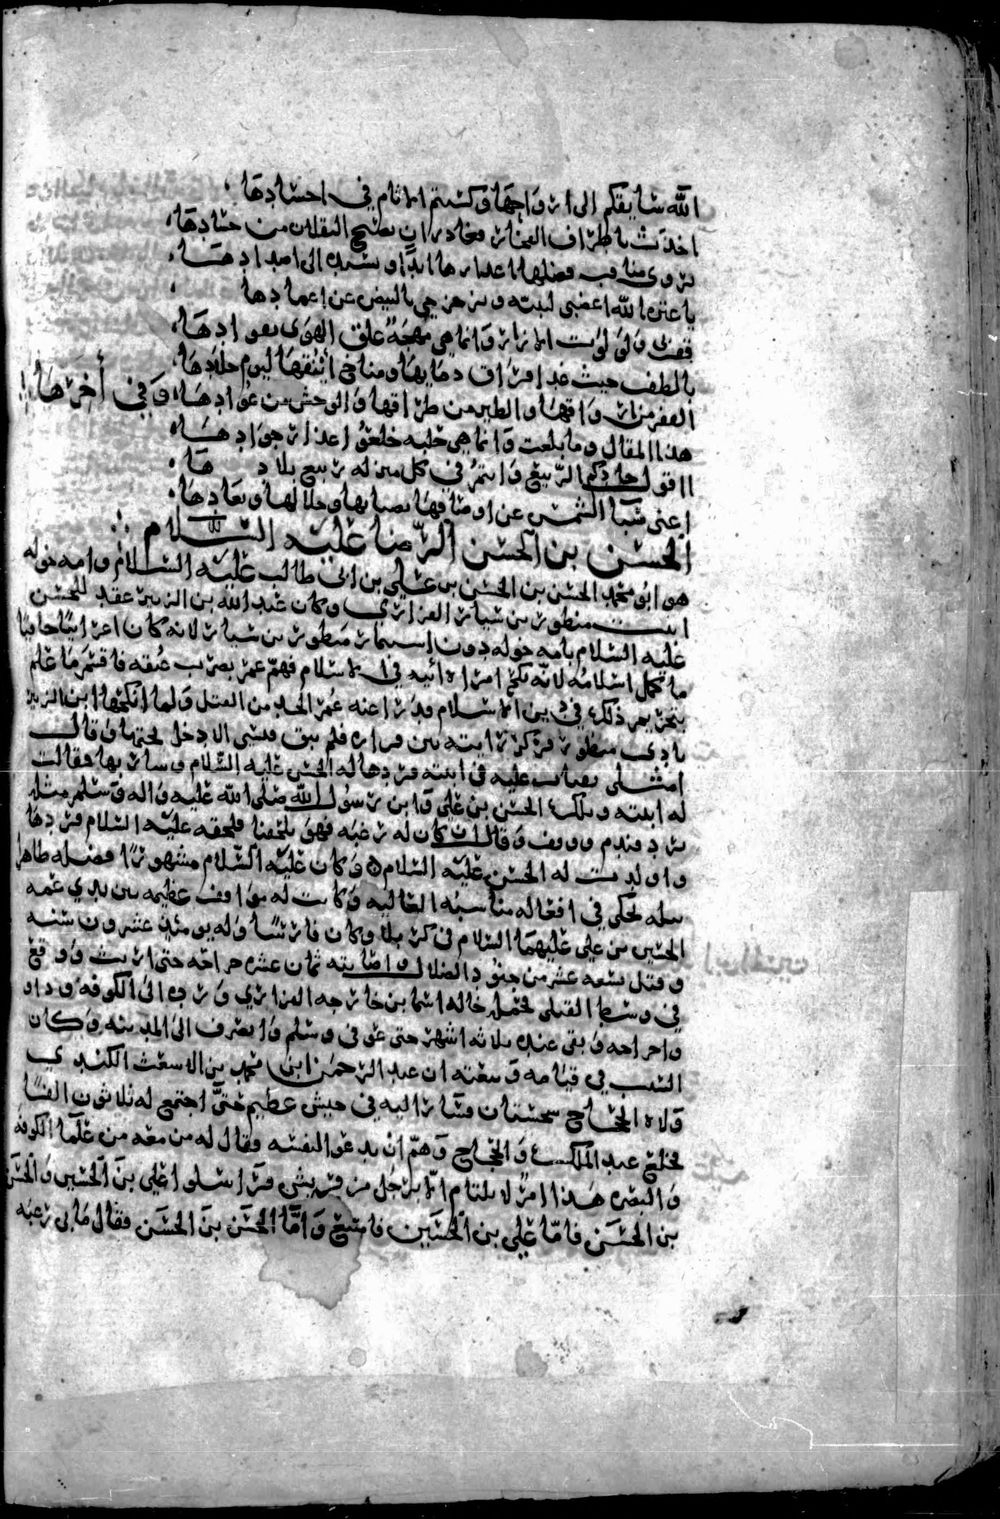 الله سايقكم الى ارواجها وكسبتم الاثام في اجسادها
اخذت باطراف الفخار فغادرت يصبح الثقلان من حسادها
تروى مناقب فضلها اعداوها ابدا وتسنده الى اضدادها
يا عترة الله اغضبي لنبيه وتزحزحي بالبيض عن اعمادها
قف لي ولو لوث الازار وانما هي مهجة علق الهوى بفوادها
بالطف حيث غدا مراق دماءها ومناخ اينقها ليوم جلادها
القفر من ارواقها والطير من طراقها والوحش من عوادها وفي أخرها
هذا المقال وما بلغت وانما هي حلبة خلعوا عذار جوادها
ااقول جادكم الربيع وانتم في كل منزلة ربيع بلادها
اغنى الشمس عن اوصافها بضيائها وجلالها وبعادها
الحسن بن الحسن الرضا عليه السلام
هو ابو محمد الحسن بن الحسن بن علي بن ابي طالب عليه السلام وامه خولة
ابنت منظور بن سيار الفزاري وكان عبد الله بن الزبير عقد للحسن
عليه السلام بامه خولة دون منظور بن سيار لانه كان اعرابيا جافيا
ما كمل اسلامه لانه نكح امراة ابيه في الاسلام فهم عمر بضرب عنقه فاقسم ما علم
بتحريم ذلك في دين الاسلام فدرا عنه عمر الحد من القتل ولما انكحها ابن الزبير
نادى منظور فلم يبق قيسي الا دخل تحتها وقال
امثلي يفتات عليه في ابنته فردها له الحسن عليه السلام وسار بها فقالت
له ابنته ويلك الحسن بن علي وابن رسول الله صلى الله عليه واله وسلم مثله
يرد فندم ووقف وقال ان كان له رغبة فهو يلحقنا فلحقه عليه السلام فردها
واولدت له الحسن عليه السلام وكان عليه السلام مشهورا فضله ظاهرا
نبله تحكي في افعاله مناسبه العالية وكانت له مواقف عظيمة بين يدي عمه
الحسين بن علي عليهما السلام في كربلا وكان فارسا وله يومئذ عشرون سنة
وقتل تسعة عشر من جنود الضلال واصابته ثمان عشرة جراحة حتى ارتث ووقع
في وسط القتلى فحمله خاله اسما بن خارجة الفزاري ورده الى الكوفة وداوا
واجراحه وبقى عنده ثلاثة اشهر حتى عوفي وسلم وانصرف الى المدينة وكان
السبب في قيامه وبيعته ان عبد الرحمن ابن محمد بن الاشعث الكندي
ولاه الحجاج سجستان وسار اليه في جيش عظيم حتى اجتمع له ثلاثون الفا
فخلع عبد الملك والحجاج وهم ان يدعو الى نفسه فقال له من معه من علما الكوفة
والبصرة هذا امر لا يلتام الا برجل من قريش فراسلوا علي بن الحسين والحسن
بن الحسن فاما علي بن الحسين فامتنع واما الحسن بن الحسن فقال ما بي رغبة